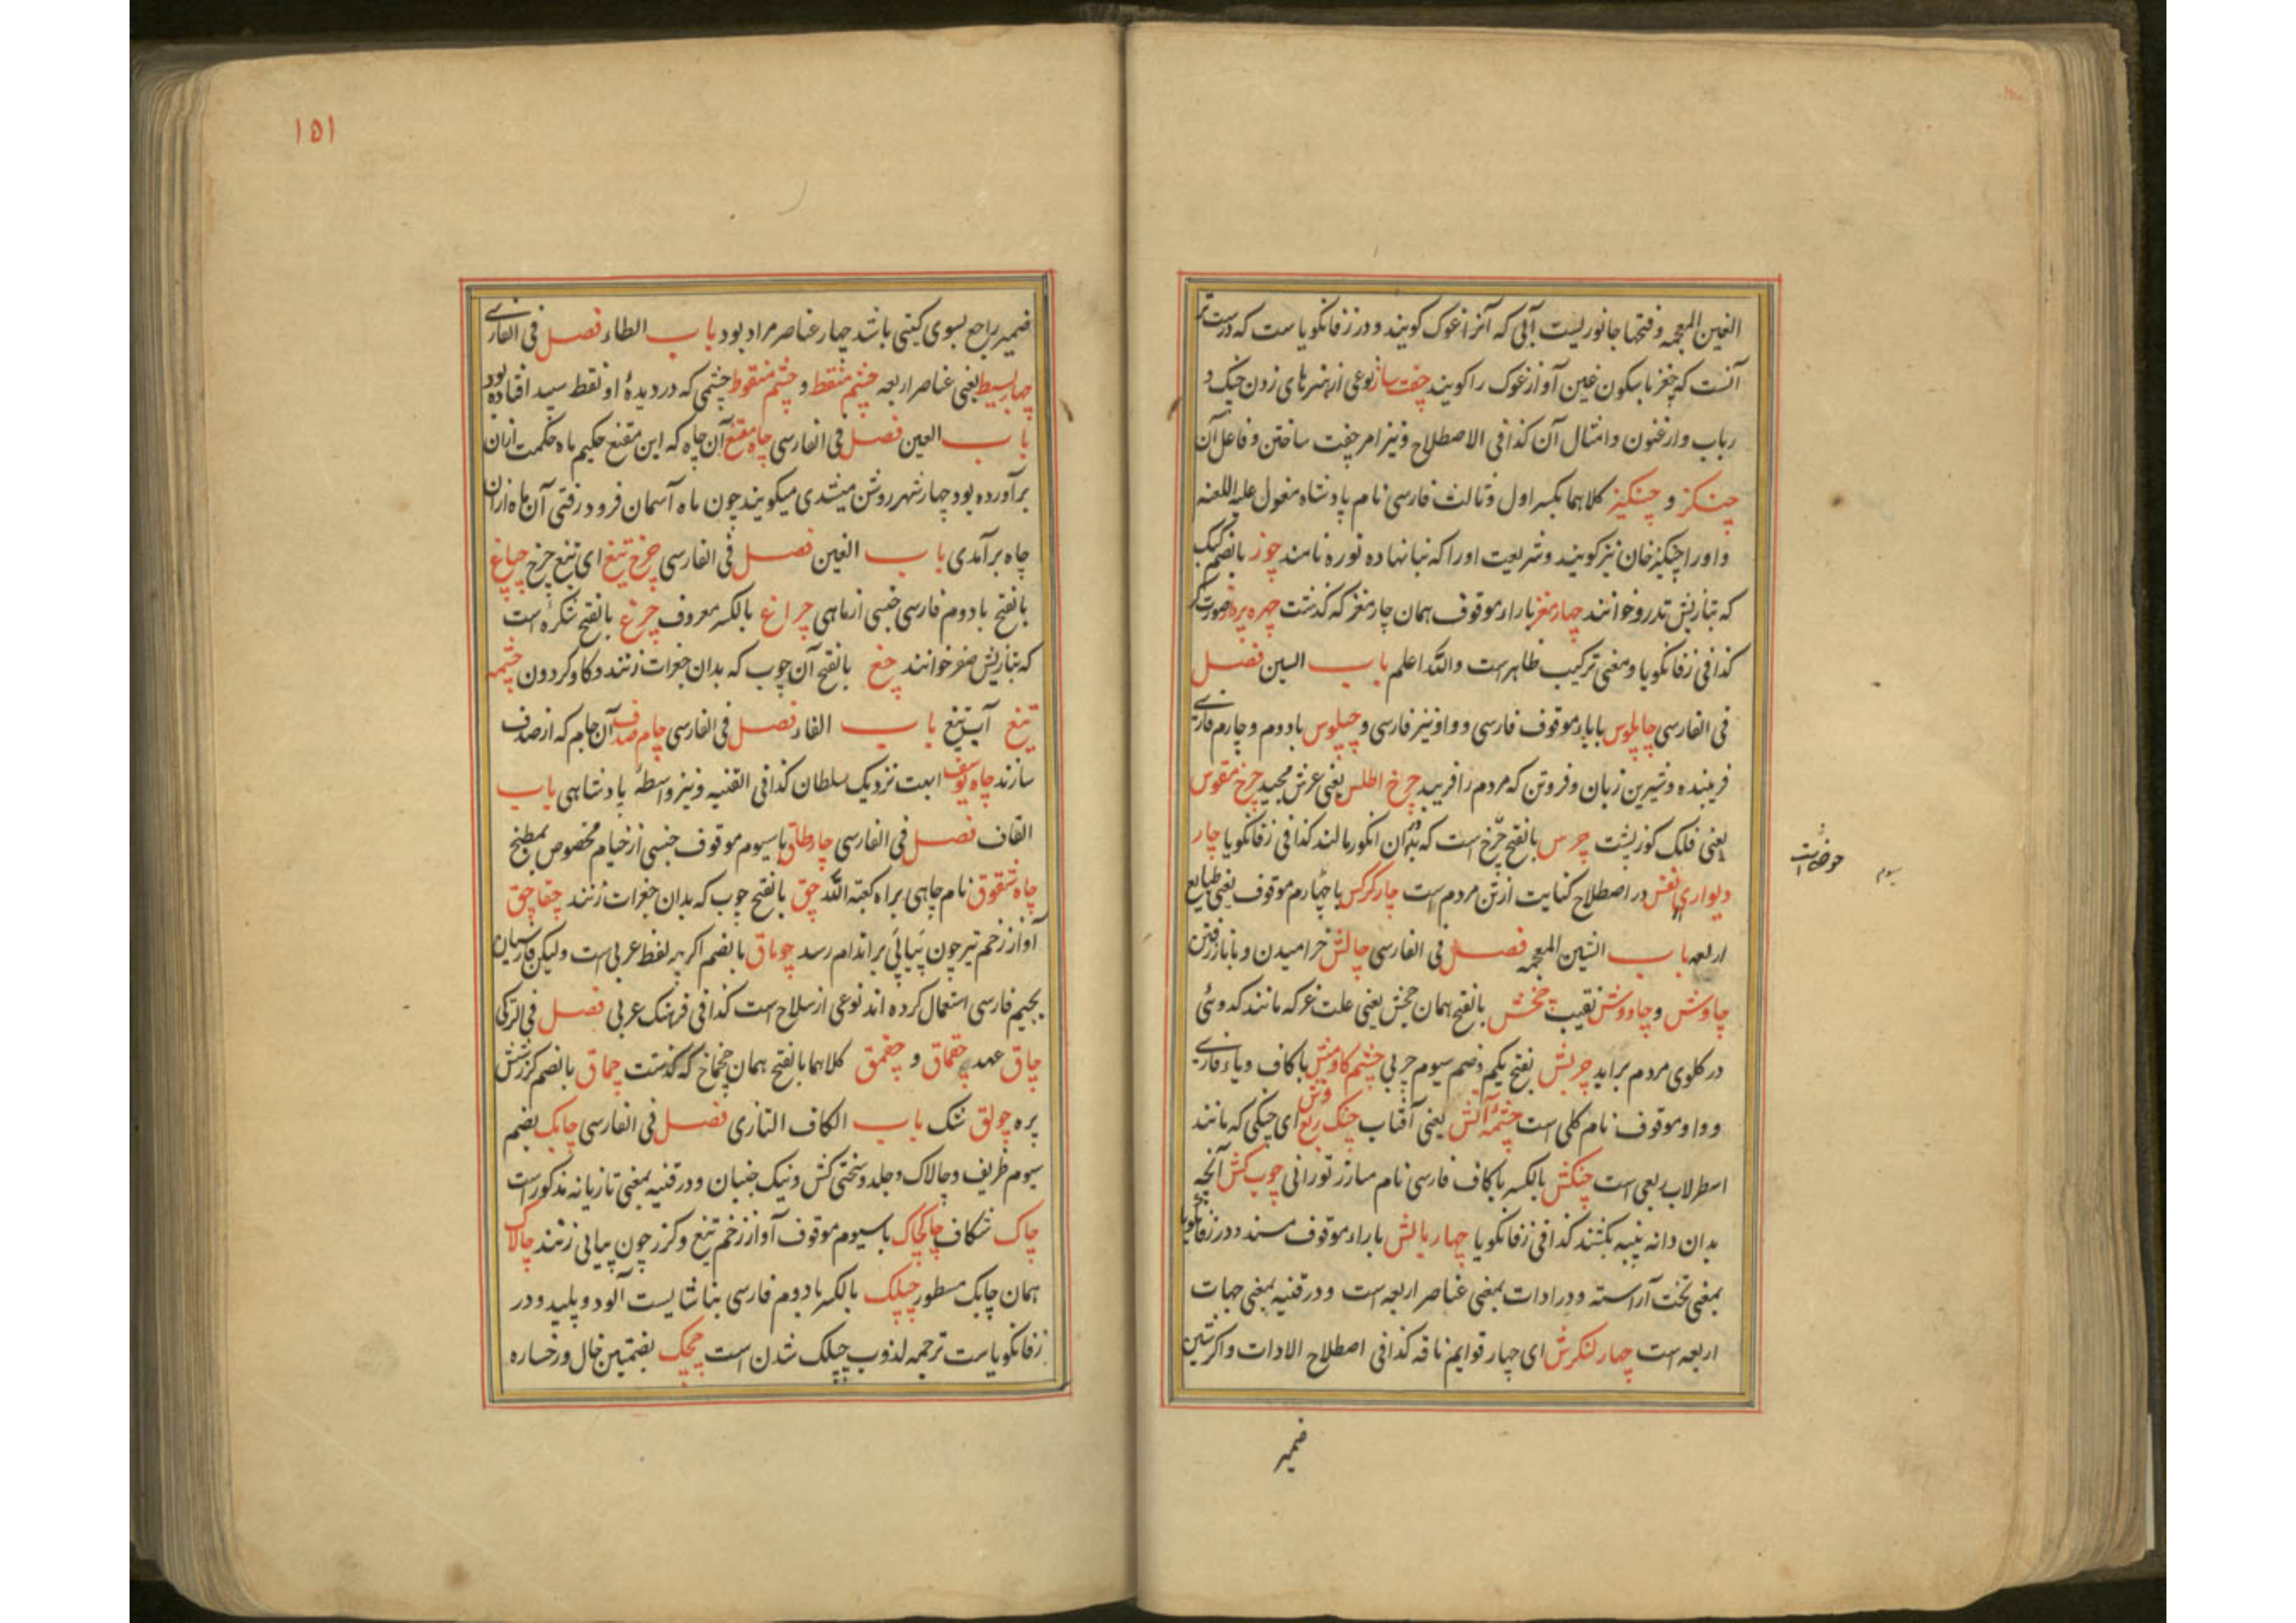 الغین المعجمه و فتحها جانوریست آبی که آنرا غوک کویند و در زفانکویا ست که درست تر
آنست که چغز با سکون غین آواز غوک را کویند چفت ساز نوعی از هنرهای زدن چنک و
رباب و ارغنون و امثال آن کذا فی الاصطلاح و نیز امر چفت ساختن و فاعل آن
چنکز و چنکیز کلاهما بکسر اول و ثالث فارسی نام پادشاه مغول علیه اللعنه
و او را چنکیز خان نیز کویند و شریعت او را که بنا نهاده توره نامند چوز بالضم کبک
که بتازیش تدرو خوانند چهار مغز با راء موقوف همان چار مغز که کذشت چهره پرداز صورت کر
کذا فی زفانکویا و معنی ترکیب ظاهرست والله اعلم باب السین فصل
فی الفارسی چاپلوس با باء موقوف فارسی و واو نیز فارسی و چپلوس با دوم و چارم فارسی
فریبنده و شیرین زبان و فروتن که مردم را فریبد چرخ اطلس یعنی عرش مجید چرخ مقوس
یعنی فلک کوز پشت چرس بالفتح چرخ است که بدان انکور مالند کذا فی زفانکویا چار
دیواری نفس در اصطلاح کنایت از تن مردم است چار کرکس با چهارم موقوف یعنی طبایع
اربعه باب الشین المعجمه فصل فی الفارسی چالش خرامیدن و بناز رفتن
چاوش و چاووش نقیب چخش بالفتح همان چخش یعنی علت غر که مانند کدوئی
در کلوی مردم براید چربش بفتح یکم و ضم سیوم چربی چشم کاومش با کاف و یاء فارسی
و واو موقوف نام کلی است چشمه آتش یعنی آفتاب چنک ربع وش ای چنکی که مانند
اسطرلاب ربعی است چنکش بالکسر با کاف فارسی نام مبارز تورانی چوب کش آنچه
بدان دانه پنبه بکشند کذا فی زفانکویا چهار بالش با راء موقوف مسند و در زفانکویا
بمعنی تخت آراسته و در ادات بمعنی عناصر اربعه است و در قنیه بمعنی جهات
اربعه است چهار لنکرش ای چهار قوایم ناقه کذا فی اصطلاح الادات و اکر شین
ضمیر
حوضی است
سیوم
۱۵۱
ضمیر راجع بسوی کیتی باشد چهار عناصر مراد بود باب الطاء فصل فی الفارسی
چهار بسیط یعنی عناصر اربعه چشم منقط و چشم منقوط چشمی که در دیدۀ او نقط سپید افتاده بود
باب العین فصل فی الفارسی چاه مقنع آن چاه که ابن مقنع حکیم ماه حکمت ازان
برآورده بود چهار شهر روشن میشدی میکویند چون ماه آسمان فرود رفتی آن ماه ازان
چاه برآمدی باب الغین فصل فی الفارسی چرخ تیغ ای تیغ چرخ چباغ
بالفتح با دوم فارسی جنسی از ماهی چراغ بالکسر معروف چرغ بالفتح شکره است
که بتازیش صقر خوانند چغ بالفتح آن چوب که بدان جغرات زنند و کاو کردون چشمه
تیغ آب تیغ باب الفاء فصل فی الفارسی جام صدف آن جام که از صدف
سازند چاه یوسف ابعت نزدیک سلطان کذا فی القنیه و نیز واسطۀ پادشاهی باب
القاف فصل فی الفارسی چارطاق با سیوم موقوف جنسی از خیام مخصوص بمطبخ
چاه شقوق نام چاهی براه کعبة الله چق بالفتح چوب که بدان جغرات زنند چقاچق
آواز زخم تیر چون پیاپی بر اندام رسد چوماق بالضم اکر چه لفظ عربی است ولیکن فارسیان
بجیم فارسی استعمال کرده اند نوعی از سلاح است کذا فی فرهنک عربی فصل فی الترکی
چاق عهد چقماق و چقمق کلاهما بالفتح همان چخماخ که کذشت چماق بالضم کرز شش
پره چولق شک باب الکاف التازی فصل فی الفارسی چابک بضم
سیوم ظریف و چالاک و جلد و سختی کش و نیک جنبان و در قنیه بمعنی تازیانه مذکور است
چاک شکاف چاکاچاک با سیوم موقوف آواز زخم تیغ و کرز چون پیاپی زنند چالاک
همان چابک مسطور چپلک بالکسر با دوم فارسی بناشایست آلوده و پلید و در
زفانکویاست ترجمه لذوب چپلک شدن است چچک بضمتین خال و رخساره